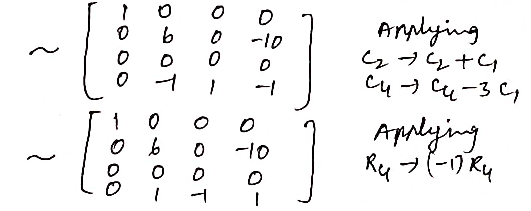 1 0 0 0
0 6 0 -10
0 0 0 0
0 -1 1 -1
Applying
C2 → C2 + C1
C4 → C4 - 3 C1
~
1 0 0 0
0 6 0 -10
0 0 0 0
0 1 -1 1
Applying
R4 → (-1) R4
~